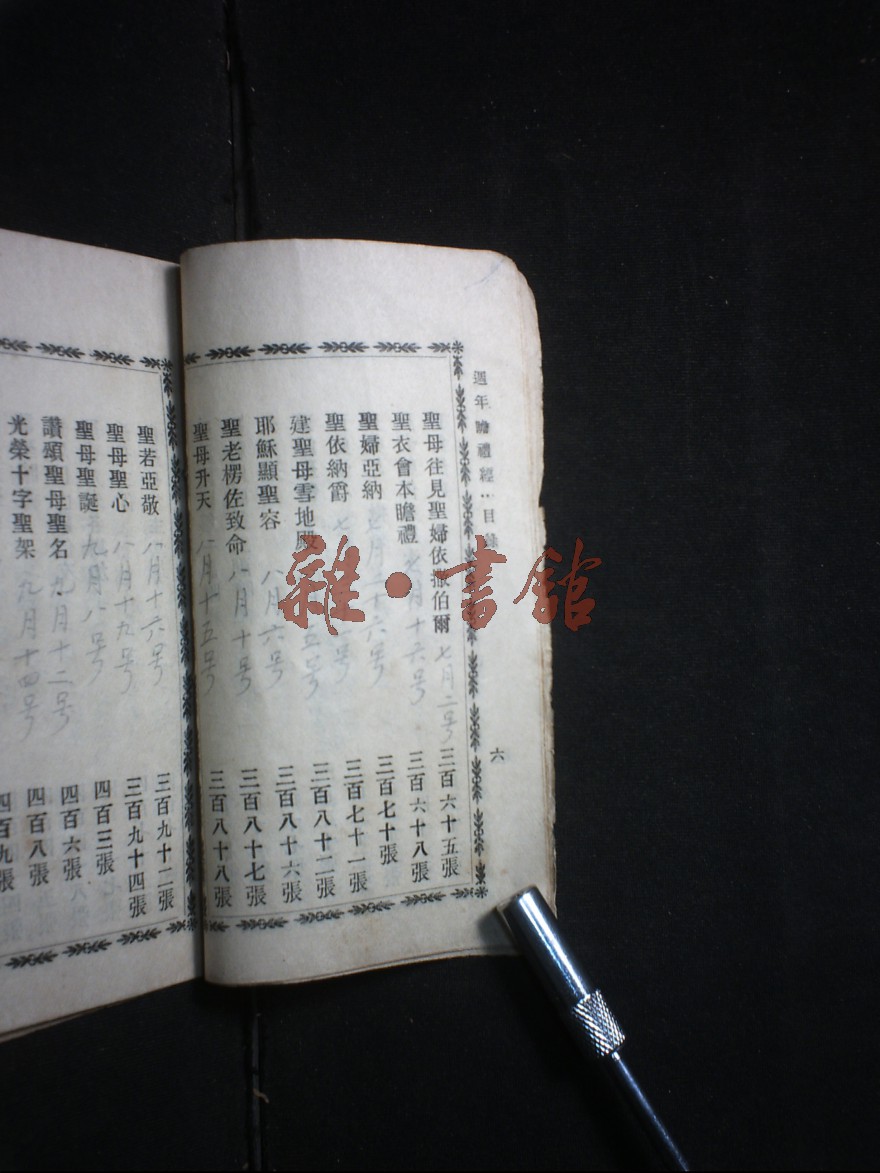 週年瞻禮經：目錄 六
聖母往見聖婦依撒伯爾 七月二号 三百六十五張
聖衣會本瞻禮 七月十六号 三百六十八張
聖婦亞納 七月二十六号 三百七十張
聖依納爵 七 号 三百七十一張
建聖母雪地殿 五号 三百八十二張
耶穌顯聖容 八月六号 三百八十六張
聖老楞佐致命 八月十号 三百八十七張
聖母升天 八月十五号 三百八十八張
聖若亞敬 八月十六号 三百九十二張
聖母聖心 八月十九号 三百九十四張
聖母聖誕 九月八号 四百三張
讚頌聖母聖名 九月十二号 四百六張
光榮十字聖架 九月十四号 四百八張
四百九張
雜·書館